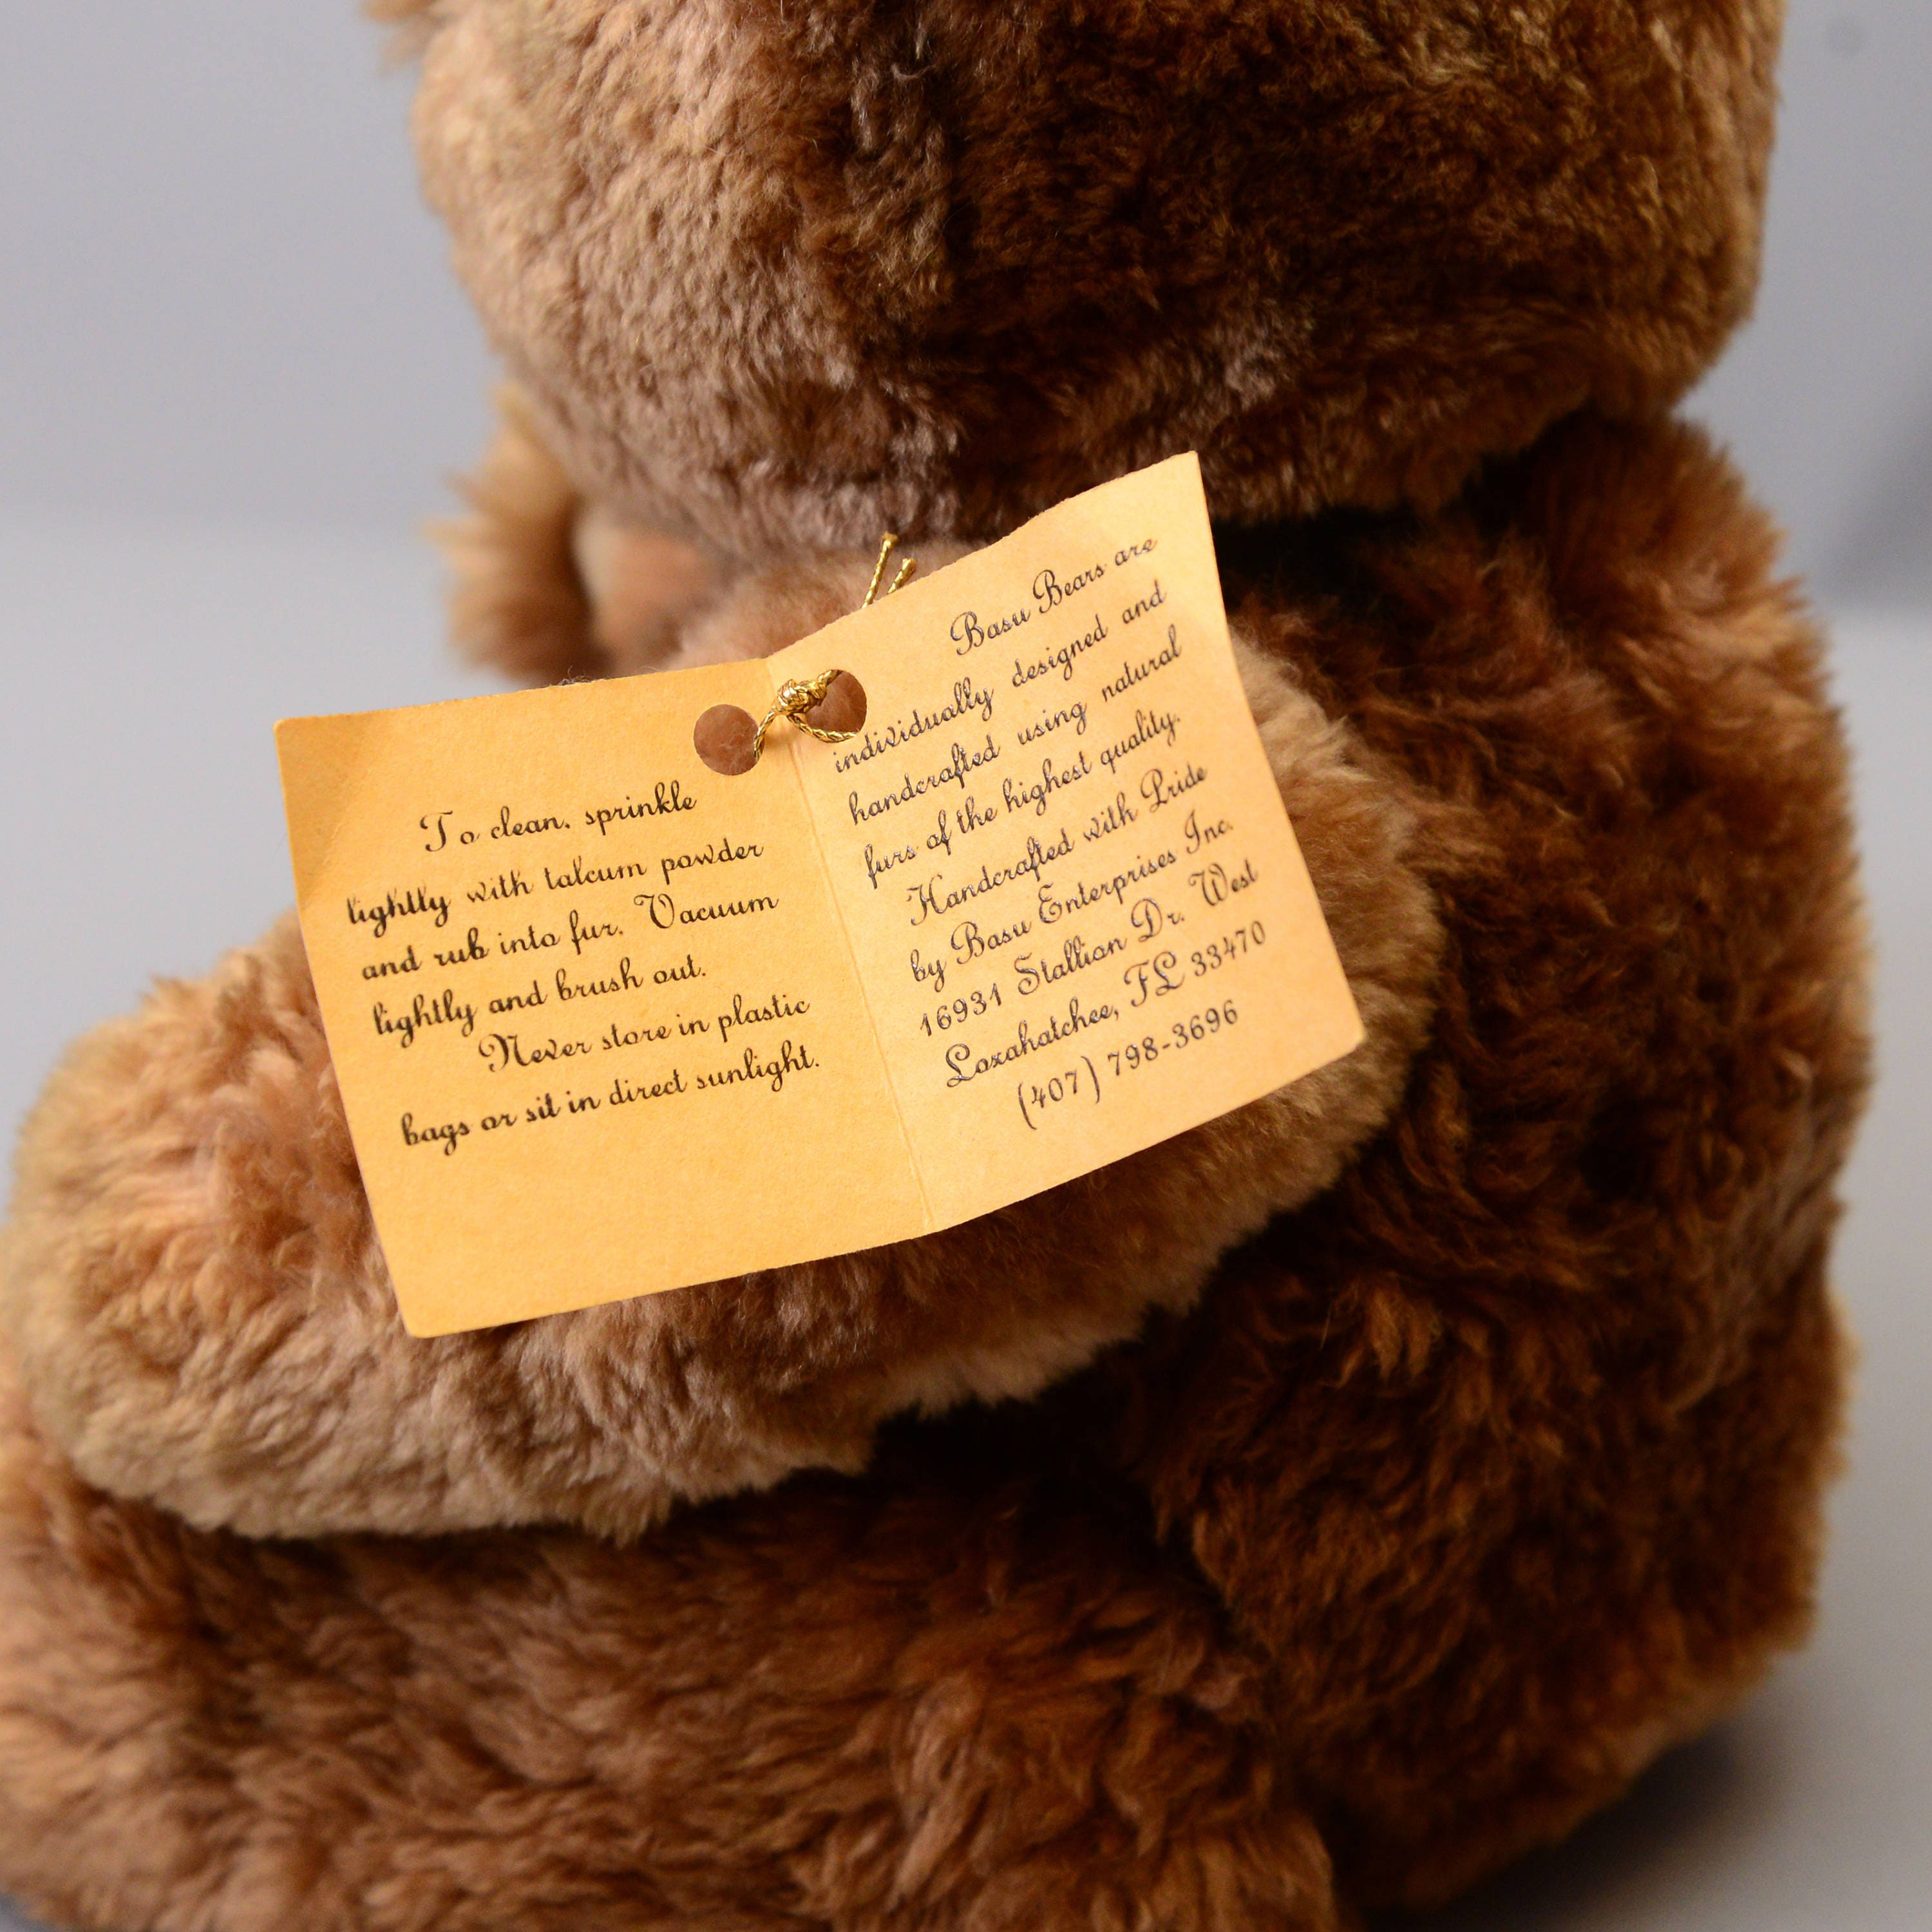 To clean, sprinkle
lightly with talcum powder
and rub into fur. Vacuum
lightly and brush out.
Never store in plastic
bags or sit in direct sunlight.
Basu Bears are
individually designed and
handcrafted using natural
furs of the highest quality.
Handcrafted with Pride
by Basu Enterprises Inc.
16931 Stallion Dr. West
Loxahatchee, FL 33470
(407) 798-3696